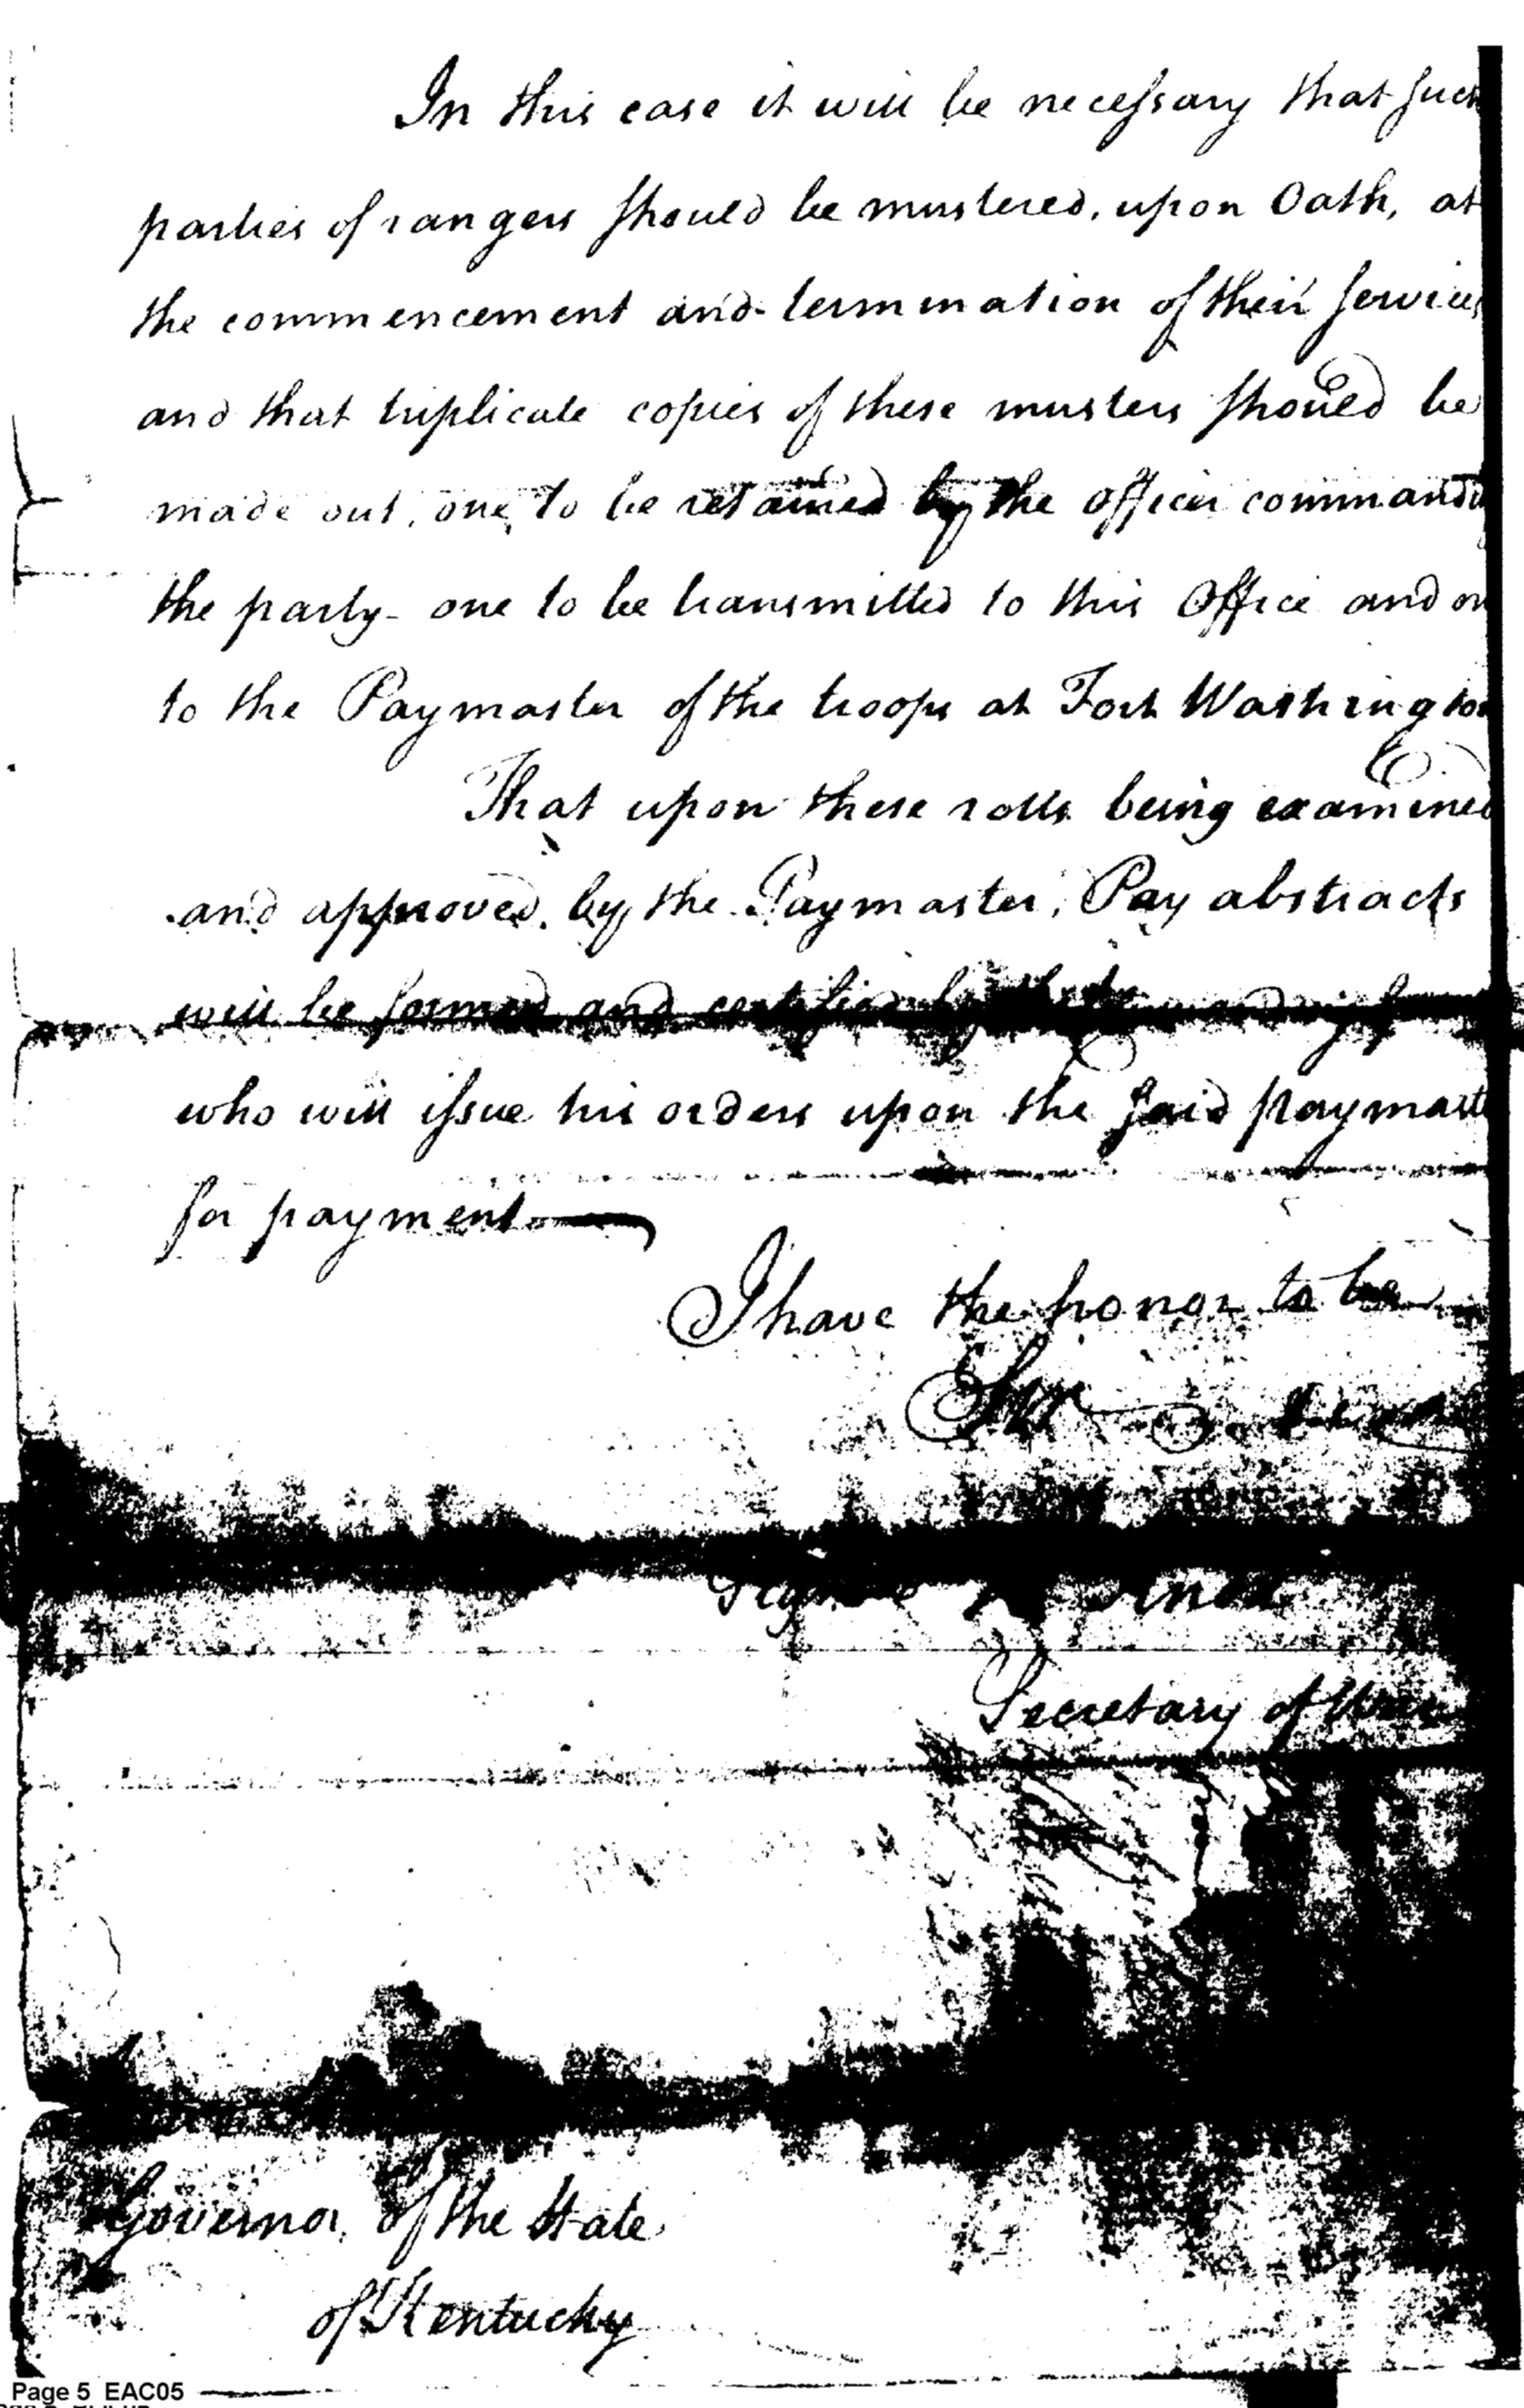 In this case it will be necessary that such
parties of rangers should be mustered, upon Oath, at
the commencement and termination of their services
and that triplicate copies of these musters should be
made out, one to be retained by the officer commandi
the party - one to be transmitted to this Office and on
to the Paymaster of the troops at Fort Washington
That upon these rolls being examined
and approved by the Paymaster, Pay abstracts
will be formed and certified by
who will issue his orders upon the said paymaste
for payment
I have the honor to be
Sir
Signed
Secretary of War
Governor of the State
of Kentucky
Page 5 EAC05